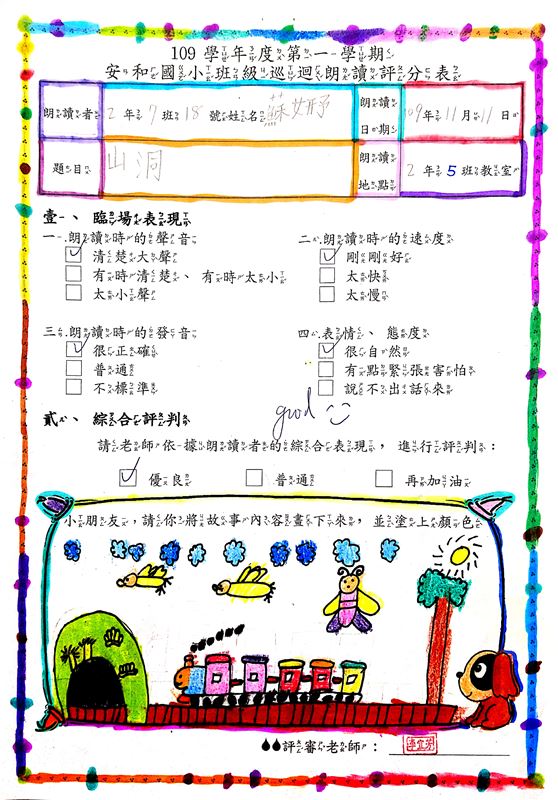 109 學年度第一學期
安和國小班級巡迴朗讀評分表
朗讀者 2 年 7 班 18 號姓名 蘇妍予 朗讀日期 109 年 11 月 11 日
題目 山洞 朗讀地點 2 年 5 班教室
壹、臨場表現
一.朗讀時的聲音
清楚大聲
有時清楚、有時太小
太小聲
二.朗讀時的速度
剛剛好
太快
太慢
三.朗讀時的發音
很正確
普通
不標準
四.表情、態度
很自然
有點緊張害怕
說不出話來
good
貳、綜合評判
請老師依據朗讀者的綜合表現，進行評判：
優良 普通 再加油
小朋友，請你將故事內容畫下來，並塗上顏色
評審老師：